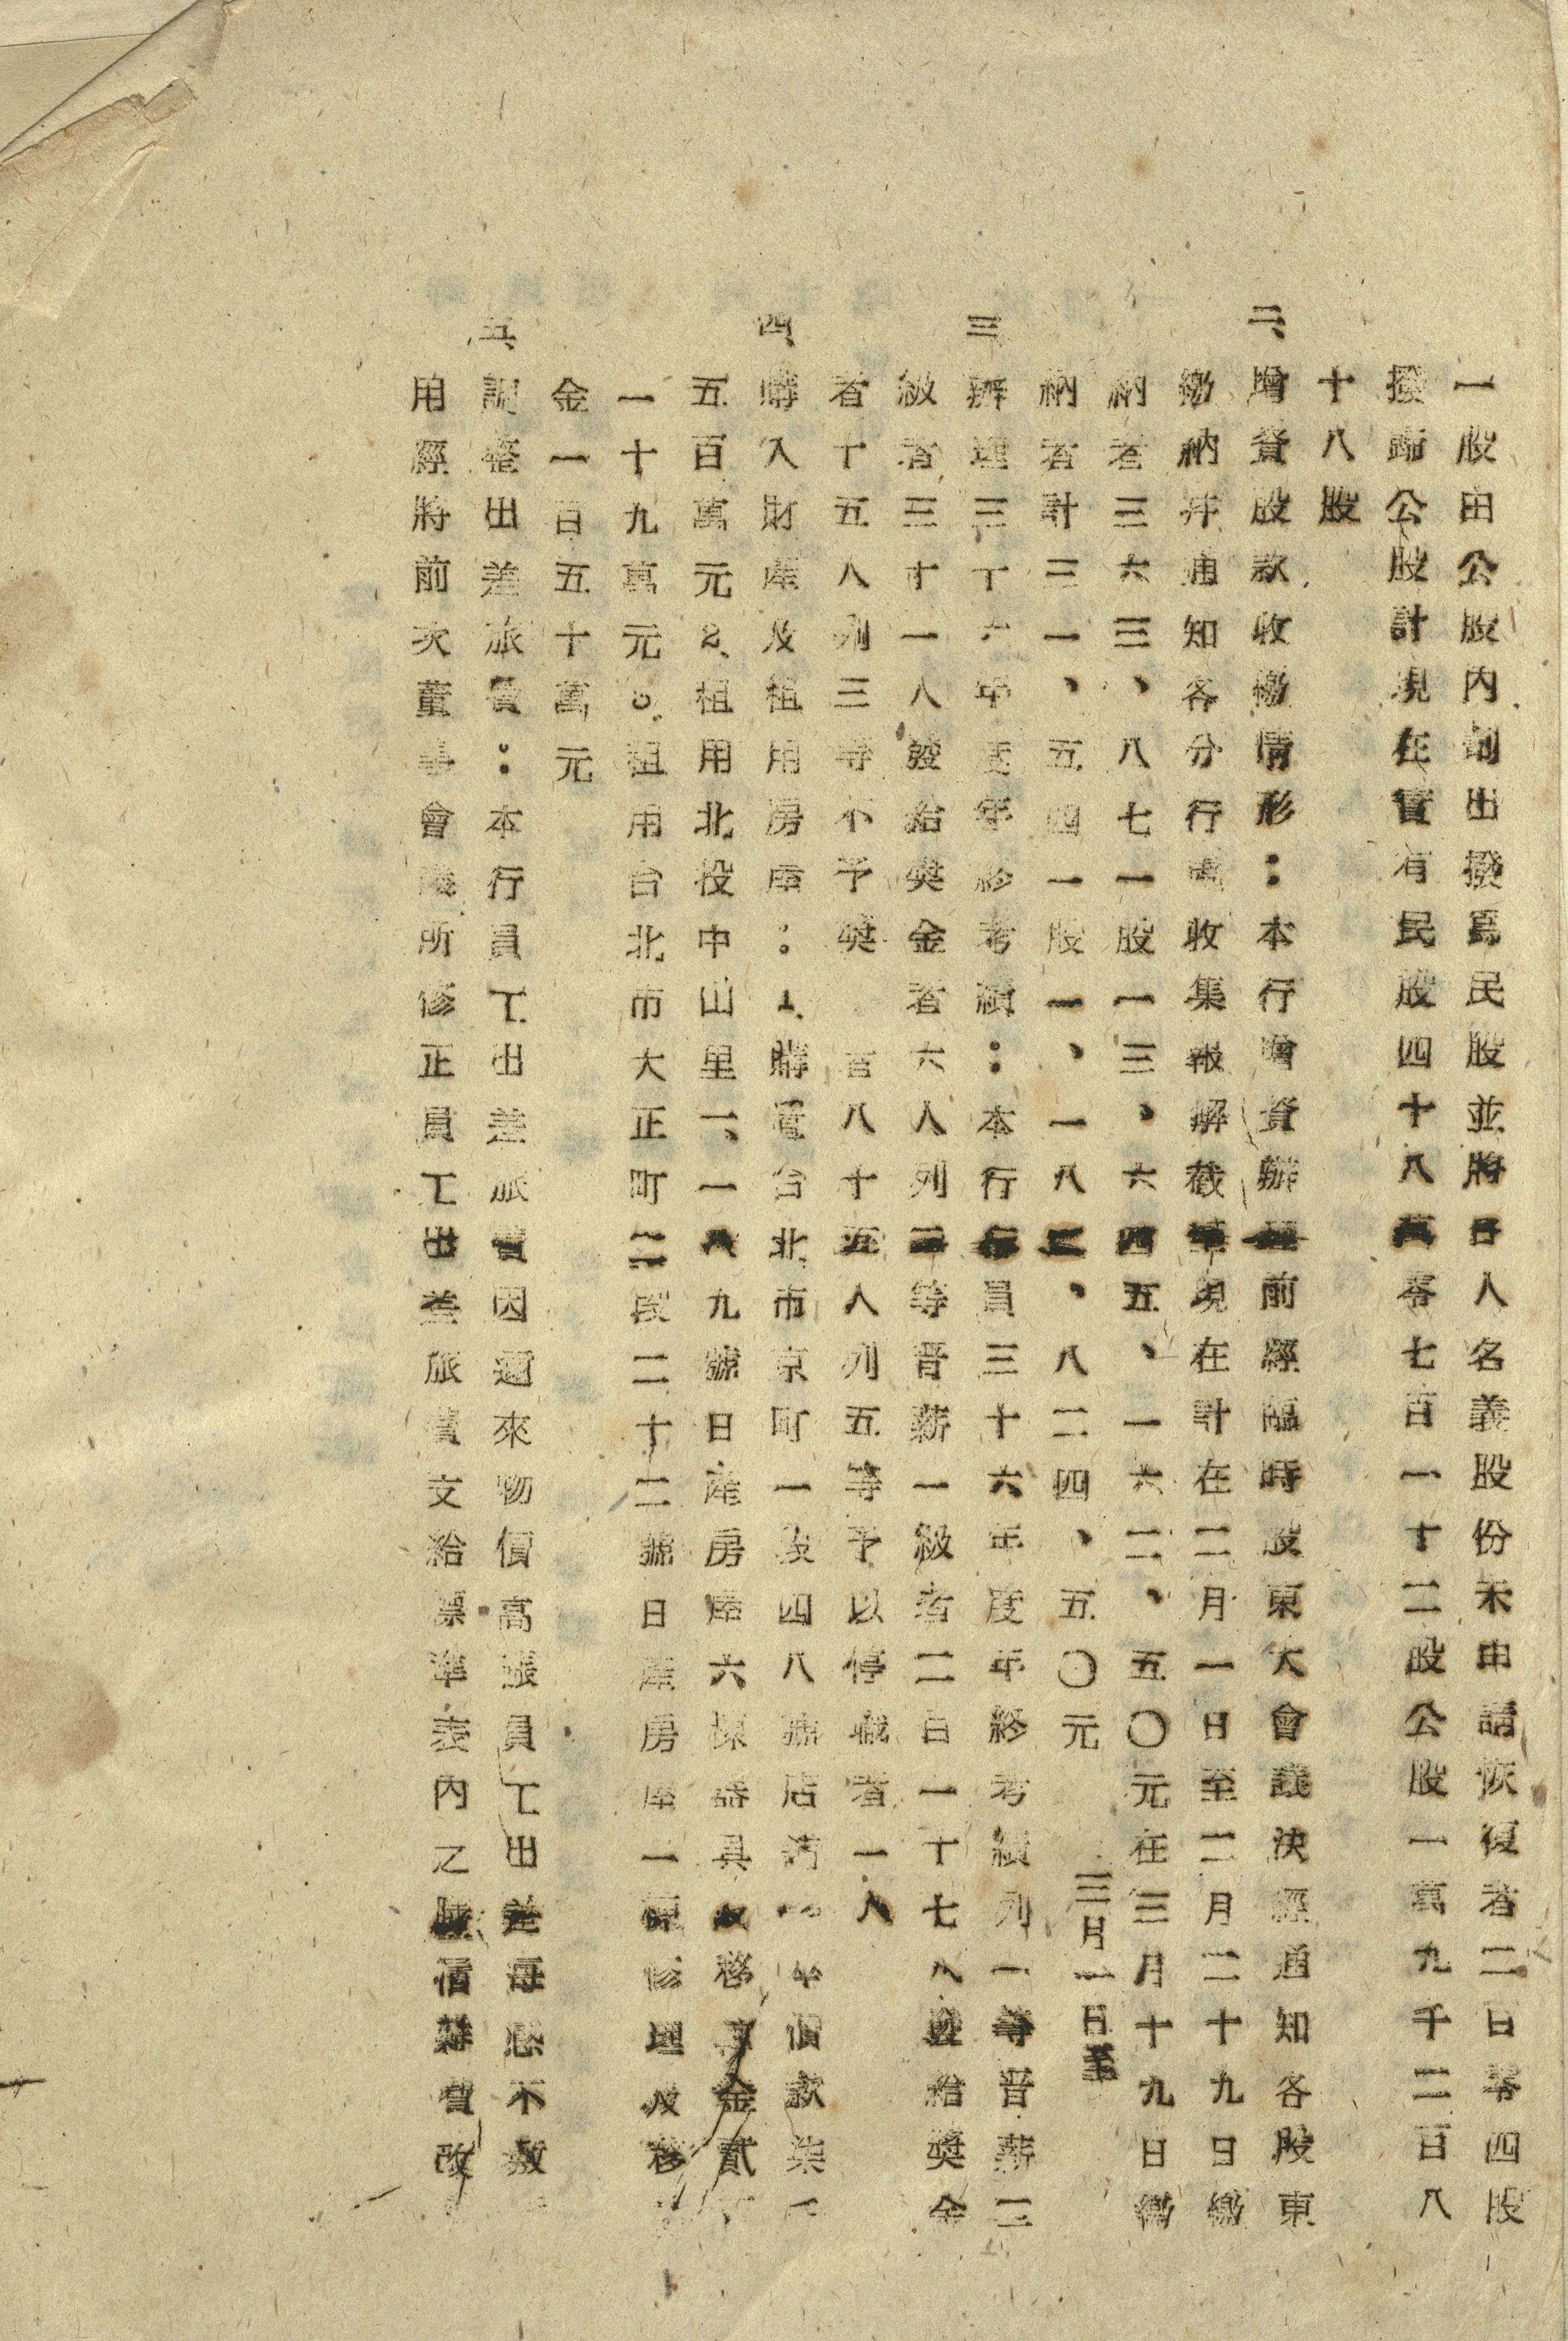 一股由公股內劃出撥爲民股並將日人名義股份未申請恢復者二百零四股
撥歸公股計現在實有民股四十八萬零七百一十二股公股一萬九千二百八
十八股
二、增資股款收繳情形：本行增資辦 前經臨時股東大會議決經通知各股東
繳納并通知各分行處收集報解截至現在計在二月一日至二月二十九日繳
納者三六三、八七一股一三、六四五、一六二、五〇元在三月十九日繳
三月一日至
納者計三一、五四一股一、一八二、八二四、五〇元
三 辦理三十六年度年終考績：本行行員三十六年度年終考績列一等晋薪二
級者三十一人發給奬金者六人列二等晋薪一級者二百一十七人發給奬金
者十五人列三等不予奬 者八十五人列五等予以停職者一人
四、購入財產及租用房屋：1.購置台北市京町一段四八號店 價款柒千
五百萬元2.租用北投中山里一、一八九號日產房屋六棟器具及移 金貳
一十九萬元3.租用台北市大正町二段二十二號日產房屋一棟修理及移
金一百五十萬元
五、調整出差旅費：本行員工出差旅費因邇來物價高漲員工出差每感不敷
用經將前次董事會議所修正員工出差旅費支給標準表內之膳宿雜費改